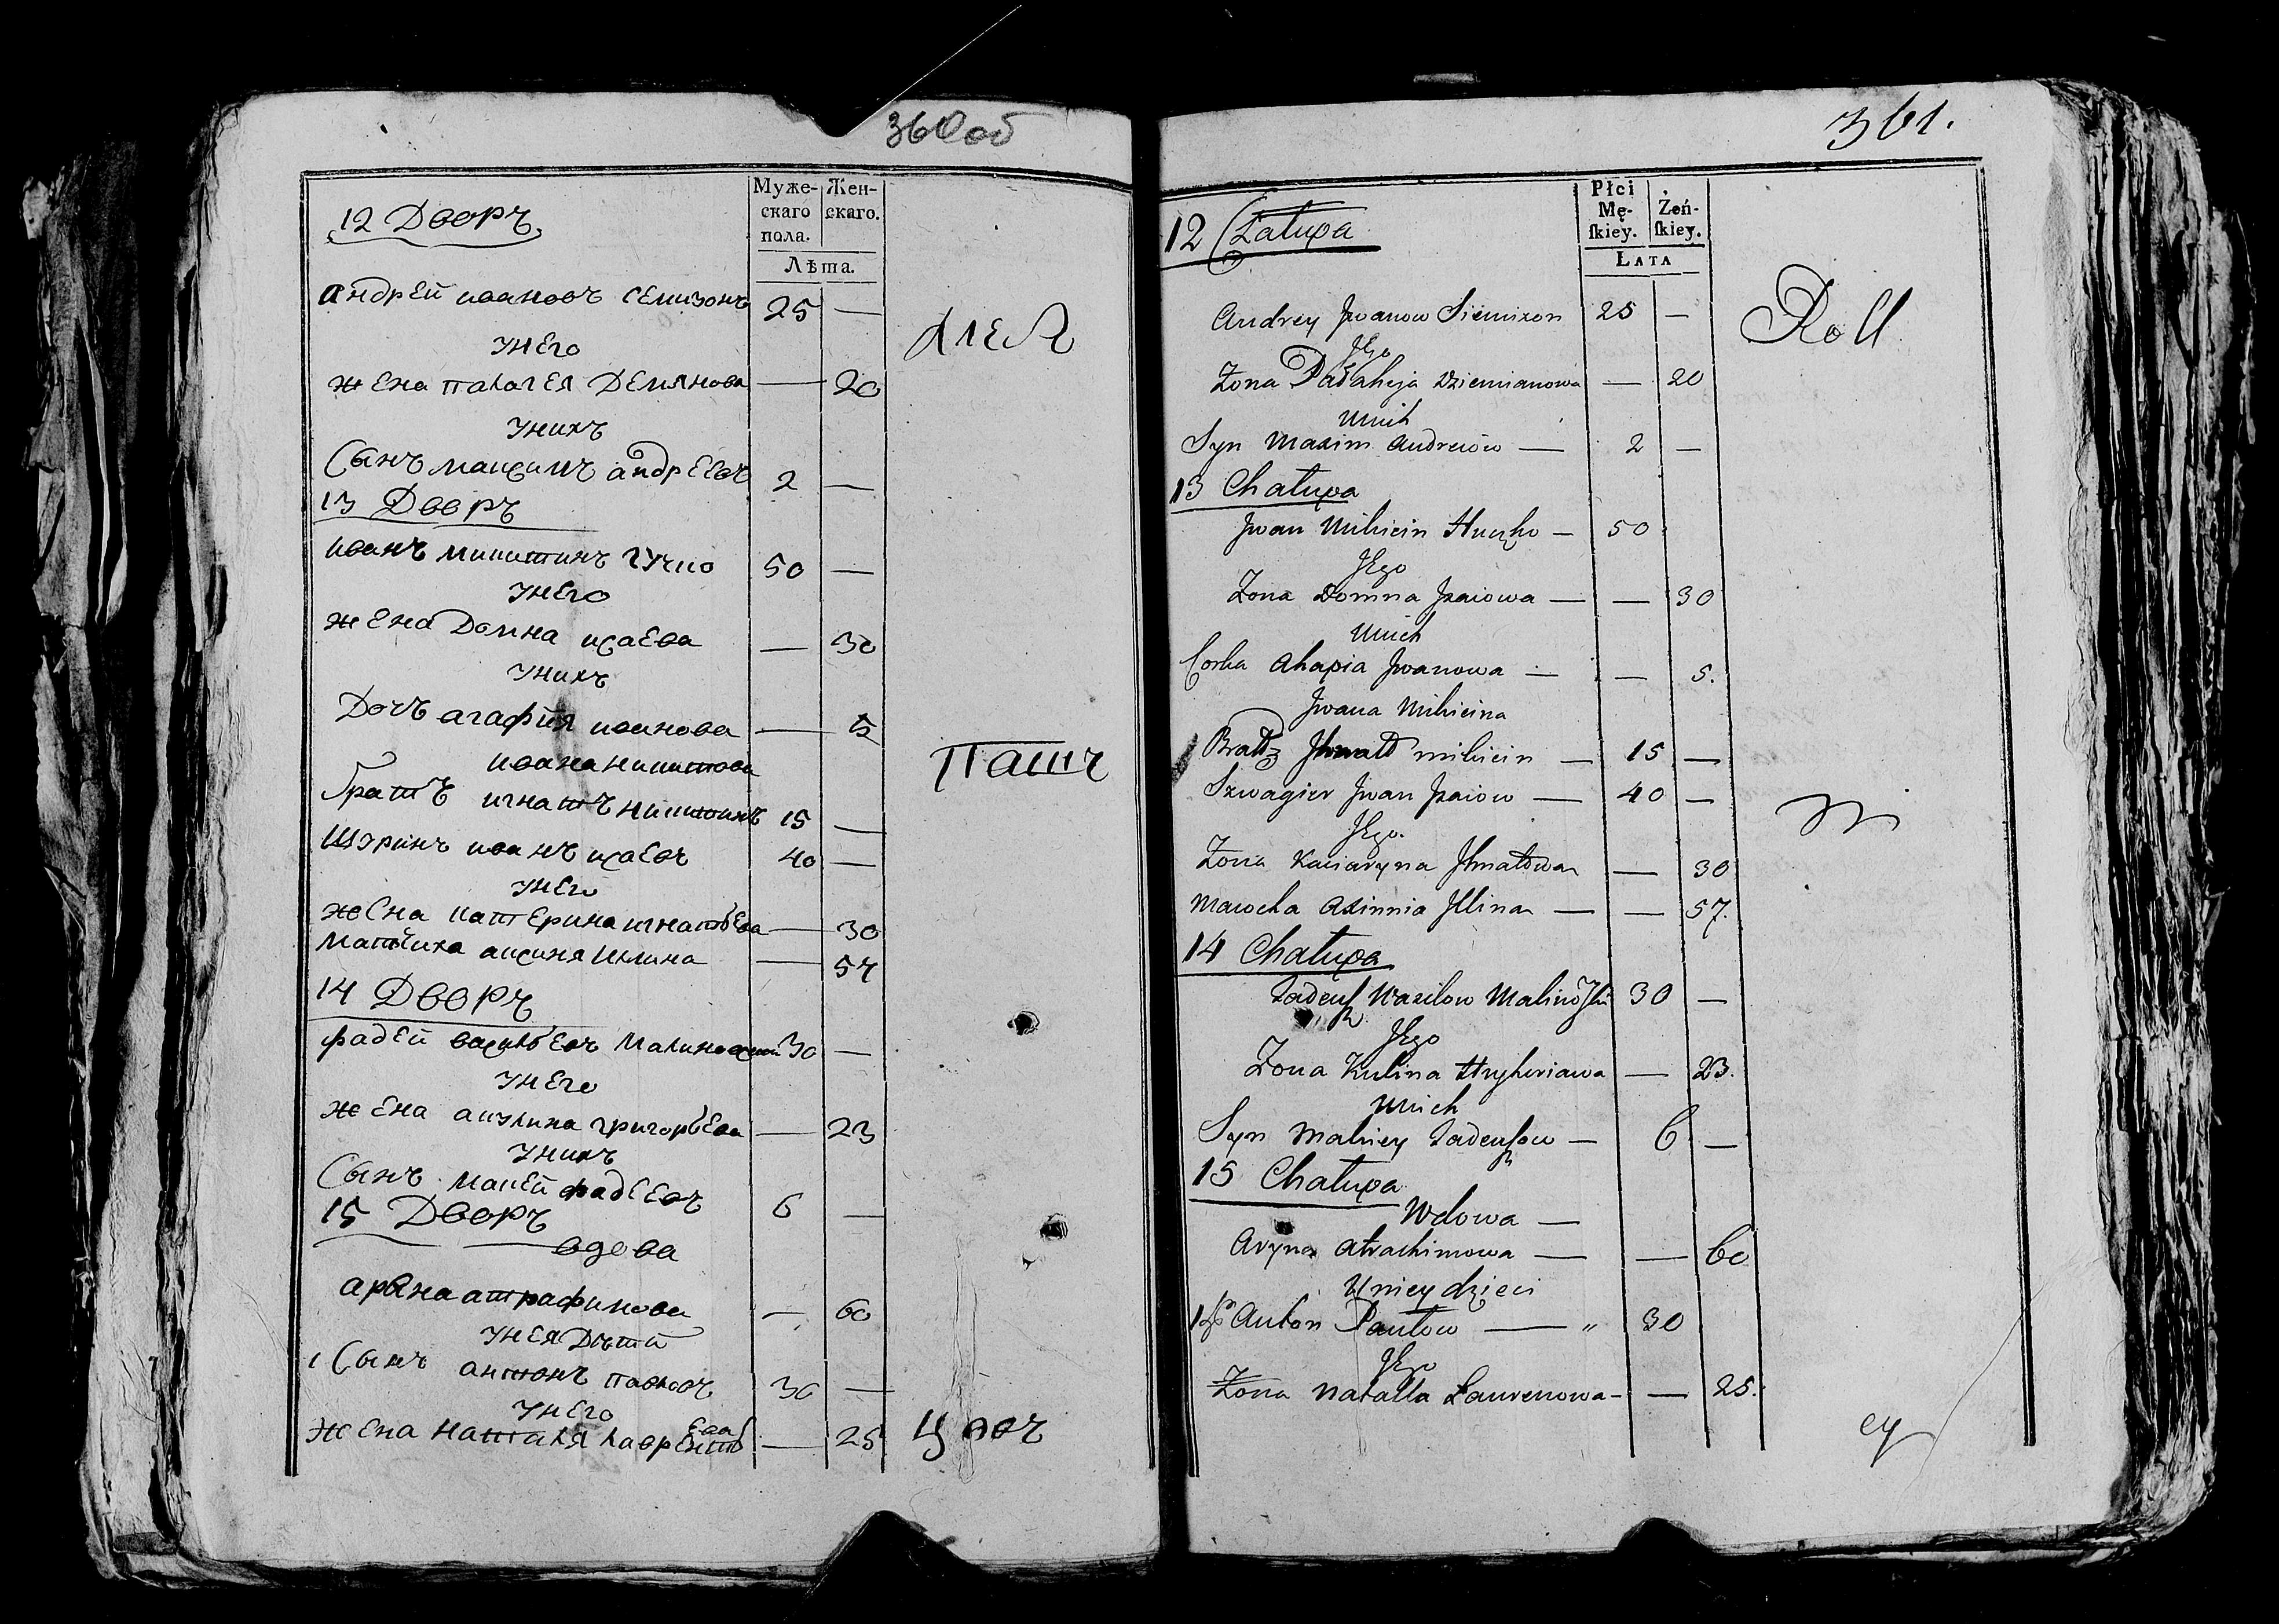 360 об
Муже-
скаго
пола.
Жен-
скаго.
Лѣта.
12 Дворъ
Андрей ивановъ семизонъ 25 —
унего
жена палагея Демянова — 20
унихъ
Сынъ максимъ андреевъ 2 —
13 Дворъ
иванъ микитинъ гучко 50 —
унего
жена Домна исаева — 30
унихъ
Дочъ агафия иванова — 5
ивана никитова
братъ игнатъ никитинъ 15 —
шуринъ иванъ исаевъ 40 —
унего
жена катерина игнатьева — 30
матчиха аксиня илина — 57
14 Дворъ
фадей васильевъ малиновский 30 —
унего
жена акулина григорьева — 23
унихъ
Сынъ макей фадеевъ 6 —
15 Дворъ
вдова
арына атрафимова — 60
унея Дѣтй
1 Сынъ антонъ павловъ 30 —
унего
жена наталя лаврентьева — 25
Пашъ
361.
Płci
Mę-
ſkiey.
Żeń-
ſkiey.
Lata
12 Chałupa
Andrey Jwanow Siemizon 25 —
Jego
Zona Pałaheja Dziemianowa — 20
Unich
Syn Maxim Andreiow — 2 —
13 Chałupa
Jwan Mikicin Huczko — 50
Jego
Zona Domna Jzaiowa — — 30
Unich
Corka Ahapia Jwanowa — — 5.
Jwana Mikicina
Bratz Jhnatt mikicin — 15 —
Szwagier Jwan Jzaiow — 40 —
Jego.
Zona Kaciaryna Jhnatowa — 30
Macocha Axinnia Jllina — — 57.
14 Chałupa
Tadeuſz Wazilow Malinoſki 30 —
Jego
Zona Kulina Hryhoriawa — 23.
Unich
Syn Makiey Tadeuſzow — 6 —
15 Chałupa
Wdowa —
Aryna Atrachimowa — — 60
Uniey dzieci
1 Syn Anton Pautow — " 30
Jego
Zona Natalla Laurenowa — — 25.
Roll